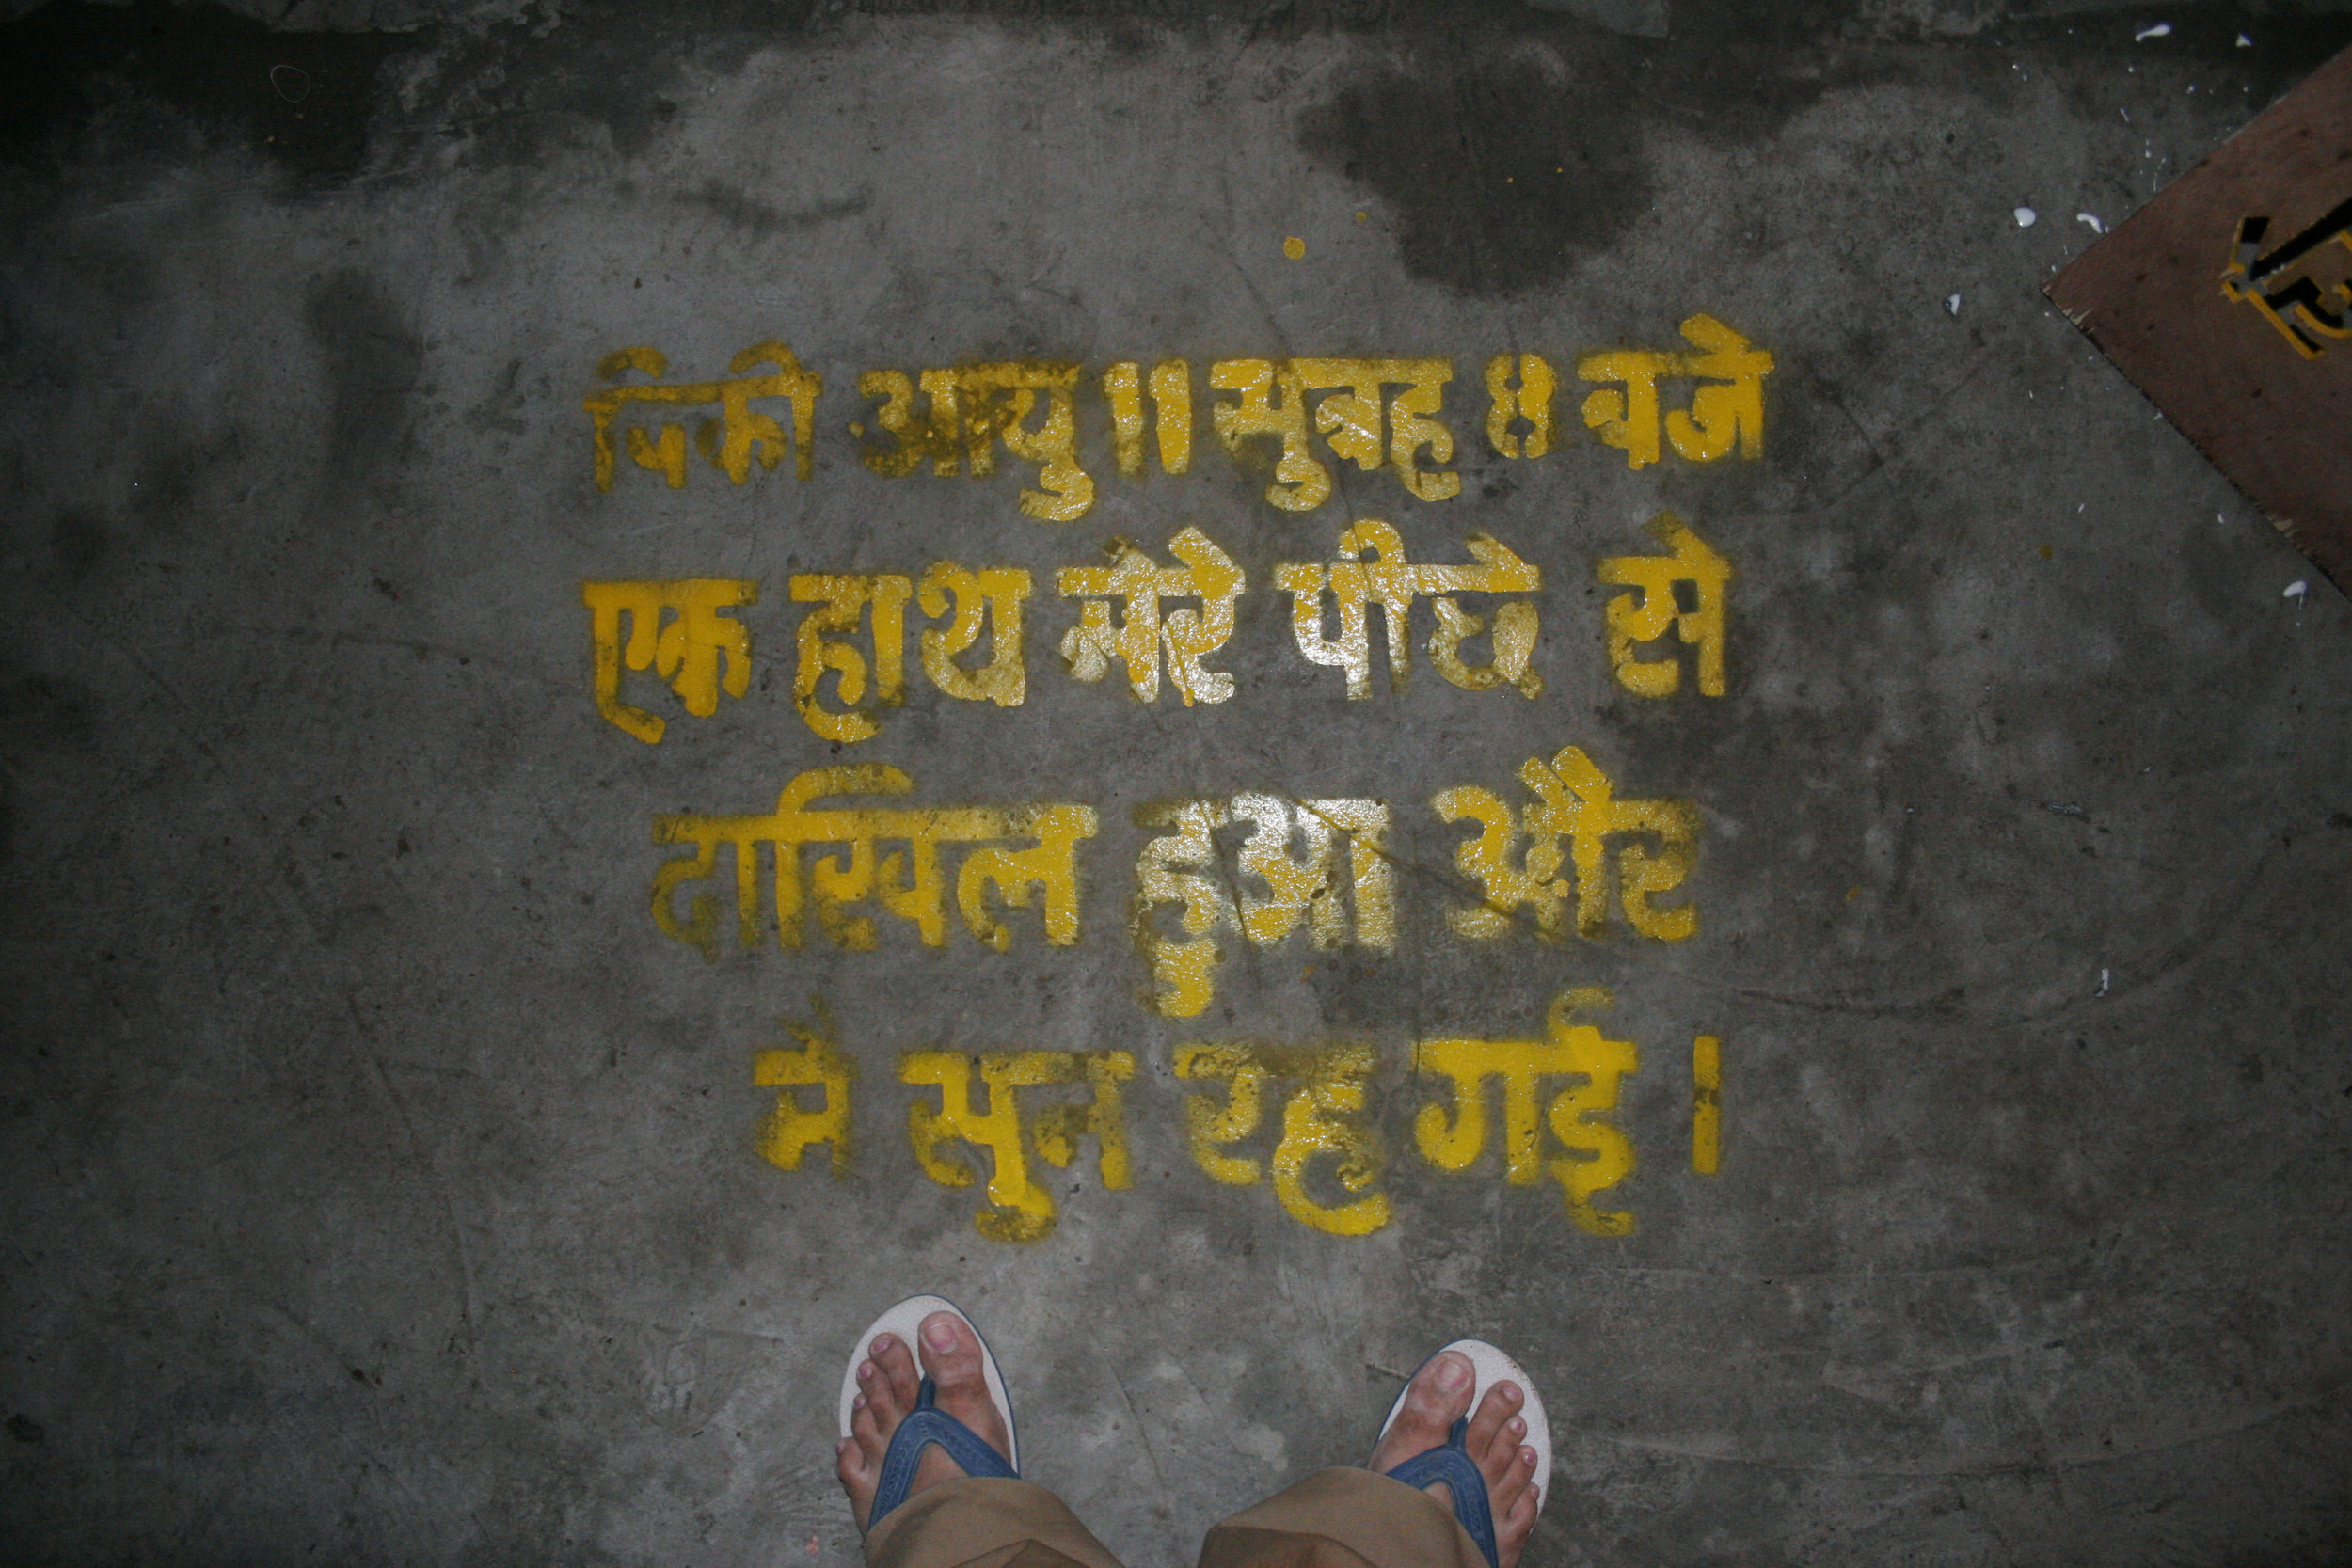 विकी आयु 11 सुबह 8 बजे
एक हाथ मेरे पीछे से
दाखिल हुआ और
मै सुन रह गई ।